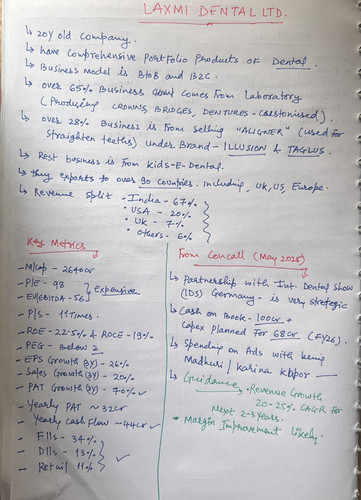 LAXMI DENTAL LTD.
↳ 20y old company.
↳ have Comprehensive Portfolio Products of Dental.
↳ Business Model is BtoB and B2C.
↳ over 65% Business comes From Laboratory
(Producing CROWNS, BRIDGES, DENTURES - Customised).
↳ over 28% Business is From selling "ALIGNER" (used for
Straighten teeths) under Brand - ILLUSION & TAGLUS.
↳ Rest business is From Kids-E-Dental.
↳ they Exports to over 90 Countries. including, UK, US, Europe.
↳ Revenue Split • India - 67%
• USA - 20%
• UK - 7%
• Others - 6%
Key Metrics
- M/cap - 2640cr
- P/E - 98
- EV/EBITDA - 56
} Expensive
- P/S - 11 times
- ROE - 22.5% & ROCE - 19%
- PEG - Below 2
- EPS Growth (3Y) - 26%
- Sales Growth (3Y) - 20%
- PAT Growth (3Y) - 70% ✓
- Yearly PAT ~ 32cr
- Yearly Cash Flow ~ 44cr ✓
- FIIs - 34%
- DIIs - 13%
- Retail 11%
} ✓
From Concall (May 2025)
↳ Partnership with Int. Dental Show
(IDS) Germany - is very strategic
↳ Cash on Book - 100cr +
Capex planned For 68cr (FY26).
↳ Spending on Ads with
Madhuri / Karina Kapoor
↳ Guidance • Revenue Growth
20-25% CAGR For
Next 2-3 years.
• Margin Improvement likely.